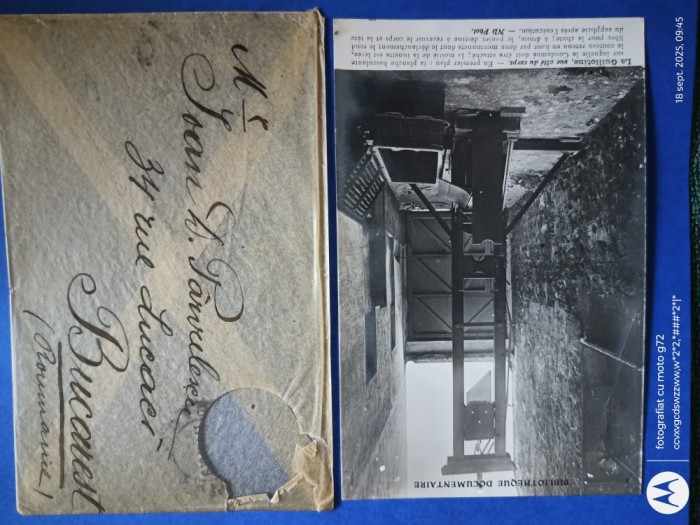 Mr
Ivan D. Pârvulescu
34 rue Lucaci
Bucarest
(Roumanie)
BIBLIOTHEQUE DOCUMENTAIRE
La Guillotine, vue côté du corps. — En premier plan : la planche basculante
sur laquelle le Condamné doit être attaché; la moitié de la lunette levée,
le couteau retenu en haut par deux mentonnets dont le déclanchement le rend
libre pour la chute; à droite, le panier destiné à recevoir le corps et la tête
du supplicié après l'exécution. — ND Phot.
fotografiat cu moto g72
ccvxvgcdswzzww,w*2*2,*###*2*|*
18 sept. 2025, 09:45